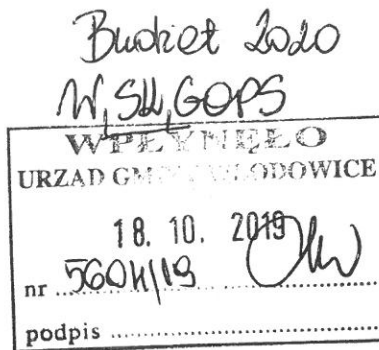 Budżet 2020
W, SK, GOPS
WPŁYNĘŁO
URZĄD GMINY WŁODOWICE
18. 10. 2019
nr 5604/19
podpis